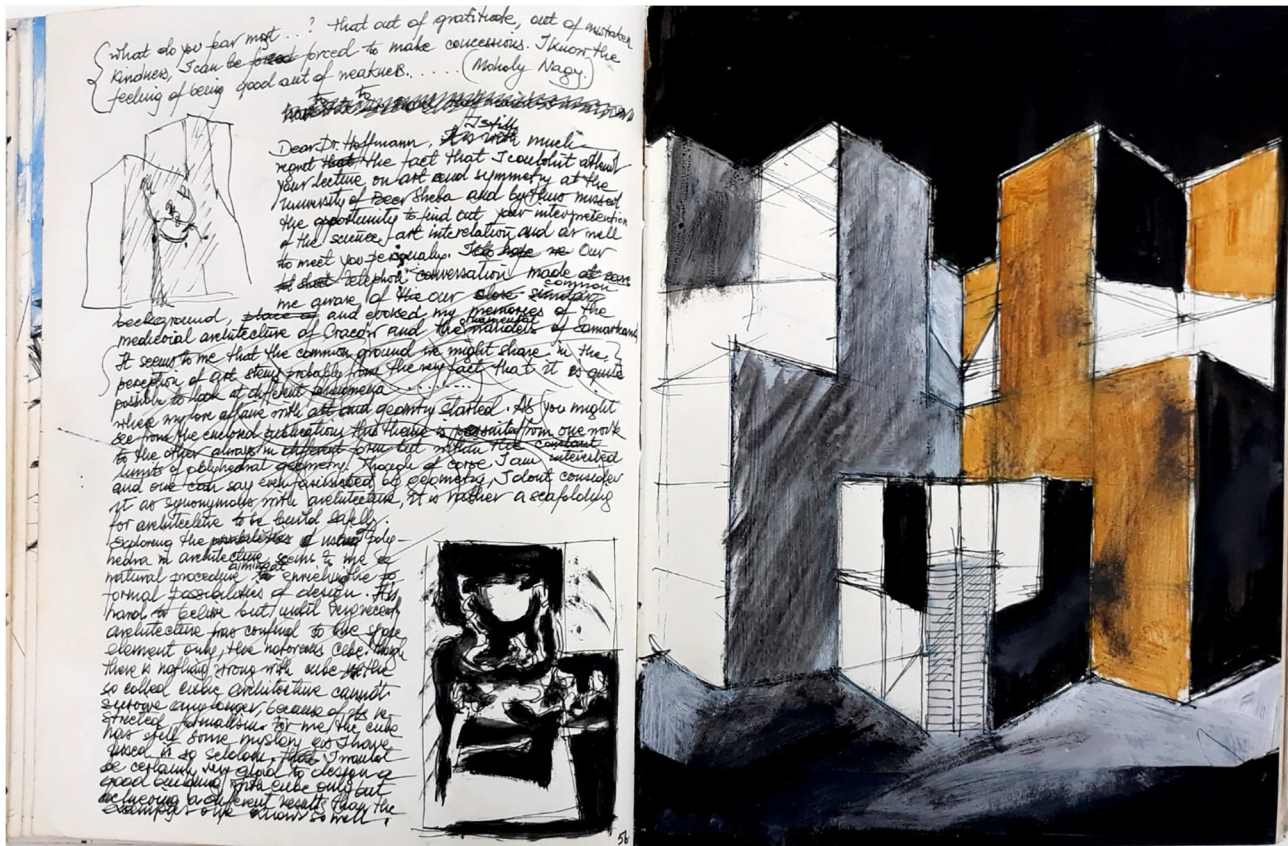 What do you fear most ..? That out of gratitude, out of mistaken
kindness, I can be forced forced to make concessions. I know the
feeling of being good out of weakness...... (Moholy Nagy.)
to to
I still
Dear Dr. Hoffmann, It is with much
regret that the fact that I couldn't attend
your lecture on art and symmetry at the
university of Beer Sheba and by thus missed
the opportunity to find out your interpretation
of the science/art interelation and as well
to meet you personaly. Our
telephon conversation made
common
me aware of the our close similar
background, and evoked my memories of the
ornamental
medieval architecture of Cracow and the of Samarkand,
It seems to me that the common ground we might share in the
perception of art stems probably from the very fact that it is quite
possible to look at different phenomena .........
where my love affaire with art and geometry started. As you might
see from the enclosed publications this theme is from one work
to the other always in different form but within the constant
limits of polyhedral geometry. Though of corse I am interested
and one can say even fascinated by geometry, I dont consider
it as synonymous with architecture, it is rather a scafolding
for architecture to be build safely.
Exploring the possibilities of using poly-
hedra in architecture seems to me a
aiming at
natural procedure to enriching the
formal possibilities of design. It is
hard to belive but until very recently
architecture was confined to one shape
element only, the notorious cube, though
there is nothing wrong with cube the
so called cubic architecture cannot
survive any longer, because of its re-
stricted formalism. For me the cube
has still some mystery as I have
used it so seldom, that I would
be certainly very glad to design a
good building with cube only but
achieving a different result than the
examples one knows so well.
56